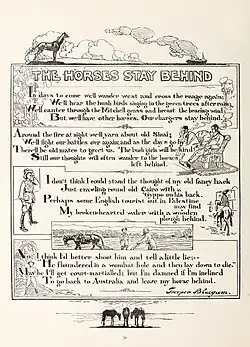 THE HORSES STAY BEHIND
In days to come we'll wander west and cross the range again;
We'll hear the bush birds singing in the green trees after rain;
We'll canter through the Mitchell grass and breast the bracing wind:
But we'll have other horses. Our chargers stay behind.
Around the fire at night we'll yarn about old Sinai;
We'll fight our battles o'er again; and as the days go by
There'll be old mates to greet us. The bush girls will be kind
Still our thoughts will often wander to the horses
left behind.
I don't think I could stand the thought of my old fancy hack
Just crawling round old Cairo with a
'Gyppo on his back.
Perhaps some English tourist out in Palestine
may find
My broken-hearted waler with a wooden
plough behind.
No: I think I'd better shoot him and tell a little lie:—
"He floundered in a wombat hole and then lay down to die."
Maybe I'll get court-martialled; but I'm damned if I'm inclined
To go back to Australia and leave my horse behind.
Trooper Bluegum.